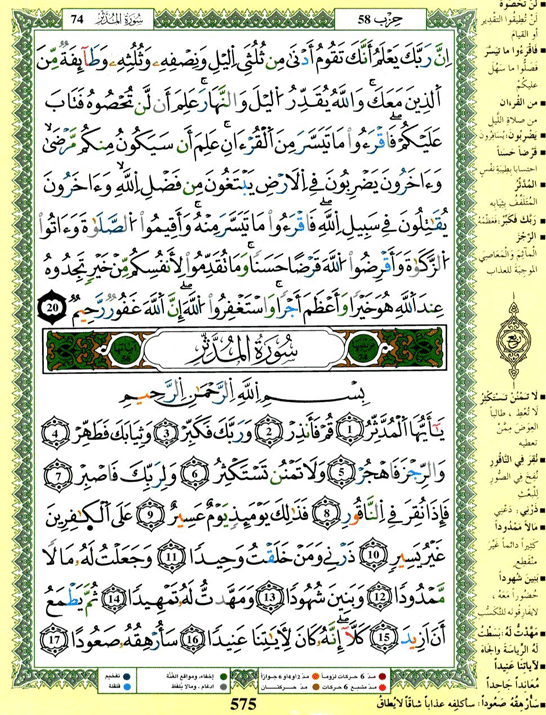 74
سُورَةُ المُدَّثِّر
حِزْب 58
إِنَّ رَبَّكَ يَعْلَمُ أَنَّكَ تَقُومُ أَدْنَىٰ مِن ثُلُثَيِ اِ۬ليْلِ وَنِصْفِهِۦ وَثُلُثِهِۦ وَطَآئِفَةٞ مِّنَ
اَ۬لذِينَ مَعَكَۖ وَاللَّهُ يُقَدِّرُ اُ۬ليْلَ وَالنَّهَارَۖ عَلِمَ أَن لَّن تُحْصُوهُ فَتَابَ
عَلَيْكُمْۖ فَاقْرَءُواْ مَا تَيَسَّرَ مِنَ اَ۬لْقُرْءَانِۖ عَلِمَ أَن سَيَكُونُ مِنكُم مَّرْضَىٰ
وَءَاخَرُونَ يَضْرِبُونَ فِي اِ۬لَارْضِ يَبْتَغُونَ مِن فَضْلِ اِ۬للَّهِ وَءَاخَرُونَ
يُقَٰتِلُونَ فِي سَبِيلِ اِ۬للَّهِۖ فَاقْرَءُواْ مَا تَيَسَّرَ مِنْهُۖ وَأَقِيمُواْ اُ۬لصَّلَوٰةَ وَءَاتُواْ
اُ۬لزَّكَوٰةَ وَأَقْرِضُواْ اُ۬للَّهَ قَرْضًا حَسَنٗاۖ وَمَا تُقَدِّمُواْ لِأَنفُسِكُم مِّنْ خَيْرٖ تَجِدُوهُ
عِندَ اَ۬للَّهِ هُوَ خَيْرٗا وَأَعْظَمَ أَجْرٗاۖ وَاسْتَغْفِرُواْ اُ۬للَّهَۖ إِنَّ اَ۬للَّهَ غَفُورٞ رَّحِيمٞۖ 20
سُورَةُ المُدَّثِّر
بِسْمِ اِ۬للَّهِ اِ۬لرَّحْمَٰنِ اِ۬لرَّحِيمِ
يَٰٓأَيُّهَا اَ۬لْمُدَّثِّرُ 1 قُمْ فَأَنذِرْ 2 وَرَبَّكَ فَكَبِّرْ 3 وَثِيَابَكَ فَطَهِّرْ 4
وَالرِّجْزَ فَاهْجُرْ 5 وَلَا تَمْنُن تَسْتَكْثِرُ 6 وَلِرَبِّكَ فَاصْبِرْ 7
فَإِذَا نُقِرَ فِي اِ۬لنَّاقُورِ 8 فَذَٰلِكَ يَوْمَئِذٖ يَوْمٌ عَسِيرٌ 9 عَلَى اَ۬لْكَٰفِرِينَ
غَيْرُ يَسِيرٖ 10 ذَرْنِي وَمَنْ خَلَقْتُ وَحِيدٗا 11 وَجَعَلْتُ لَهُۥ مَالٗا
مَّمْدُودٗا 12 وَبَنِينَ شُهُودٗا 13 وَمَهَّدتُّ لَهُۥ تَمْهِيدٗا 14 ثُمَّ يَطْمَعُ
أَنْ أَزِيدَ 15 كَلَّآ إِنَّهُۥ كَانَ لِأٓيَٰتِنَا عَنِيدٗا 16 سَأُرْهِقُهُۥ صَعُودًا 17
لَنْ تُحْصُوهُ
لَنْ تُطِيقُوا التَّقْدِيرَ
أو القيام
فَاقْرَءُوا ما تيَسَّرَ
فَصَلُّوا ما سَهُلَ
عليكُمْ
من القرءان
من صلاة اللَّيل
يَضْرِبُون: يُسَافِرُون
قرْضاً حَسَناً
احتساباً بطيبَةِ نَفْسٍ
المُدَّثِّرُ
المُتَلَفِّفُ بِثِيابِه
رَبَّكَ فَكَبِّرْ: فعَظِّمْهُ
الرِّجْزَ
المآثِمَ والمَعَاصِيَ
الموجِبَةَ للعذاب
لا تَمْنُنْ تَسْتَكْثِرُ
لا تُعْطِ، طالباً
العِوَضَ مِمَّنْ
تعطيه
نُقِرَ في النَّاقُورِ
نُفِخَ في الصُّورِ
لِلْبَعْثِ
ذَرْنِي: دَعْني
مالاً مَمْدُوداً
كثيراً دائماً غَيْرَ
مُنْقَطِعٍ
بَنِينَ شُهُوداً
حُضُوراً معَهُ،
لا يفارقونه للتَّكَسُّبِ
مَهَّدْتُ لَهُ: بَسَطْتُ
لَهُ الرِّياسَةَ والجَاهَ
لآياتنا عَنيداً
مُعَانِداً جَاحِداً
سأرهقه صَعُوداً: سأكلفه عذاباً شاقّاً لا يُطاق
مدّ 6 حركات لزوماً
مدّ 2 أو 4 أو 6 جوازاً
إخفاء، ومواقع الغُنَّة
تفخيم
مدّ مشبع 6 حركات
مدّ حركتان
إدغام، وما لا يُلفَظ
قلقلة
575